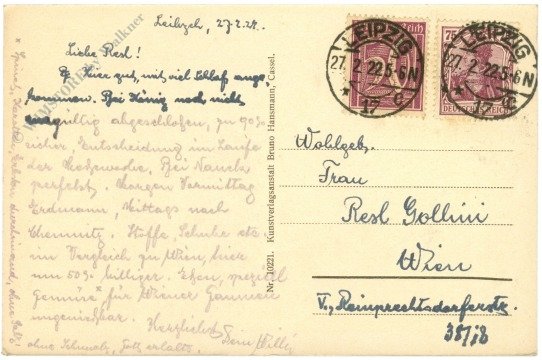 Leibzch, 27.2.22.
Liebe Resl!
Hier gut, mit viel Schlaf ange-
kommen. Bei König noch nicht
engültig abgeschlossen, zu 90%
sicher. Entscheidung im Laufe
der Bei
perfekt. Morgen Vormittag
Erdmann, Mittags nach
Chemnitz. Stoffe, Schuhe etc.
im Vergleich zu Wien, hier
um 50% billiger. Essen, speziell
Gemüse * für Wiener Gaumen
ungeniessbar. Herzlichst
Dein Willi
ohne Schmalz, Gott erhalts.
Nr. 10221. Kunstverlagsanstalt Bruno Hansmann, Cassel.
LEIPZIG
27.2.22.5-6N
* 17 c
LEIPZIG
27.2.22.5-6N
* 17 c
75
DEUTSCHES REICH
Wohlgeb.
Frau
Resl Gollini
Wien
V., Reinprechtsdorferstr.
38/i8